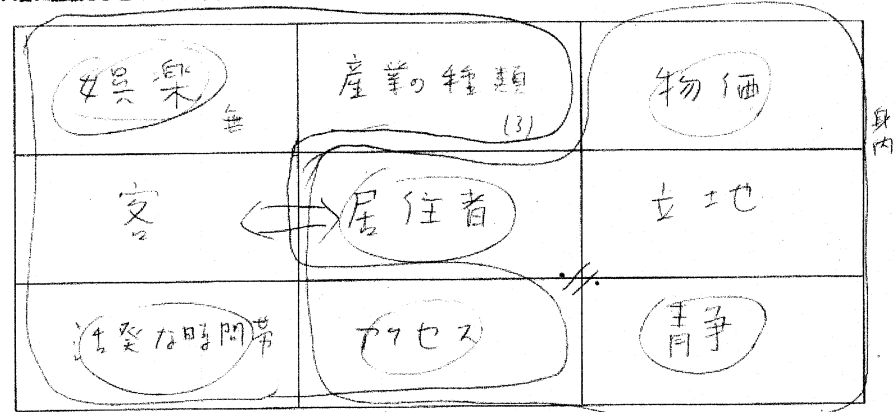 娯楽
無
産業の種類
(3)
物価
身内
客
居住者
立地
活発な時間帯
アクセス
静